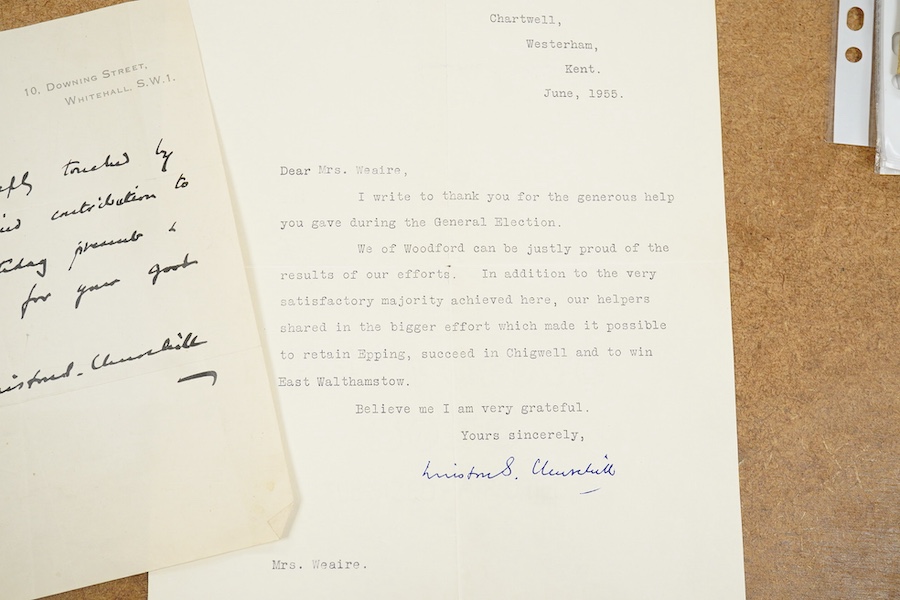 10, DOWNING STREET,
WHITEHALL, S.W.1.
touched by
contribution to
present &
for your good
Winston S. Churchill
Chartwell,
Westerham,
Kent.
June, 1955.
Dear Mrs. Weaire,
I write to thank you for the generous help
you gave during the General Election.
We of Woodford can be justly proud of the
results of our efforts. In addition to the very
satisfactory majority achieved here, our helpers
shared in the bigger effort which made it possible
to retain Epping, succeed in Chigwell and to win
East Walthamstow.
Believe me I am very grateful.
Yours sincerely,
Winston S. Churchill
Mrs. Weaire.